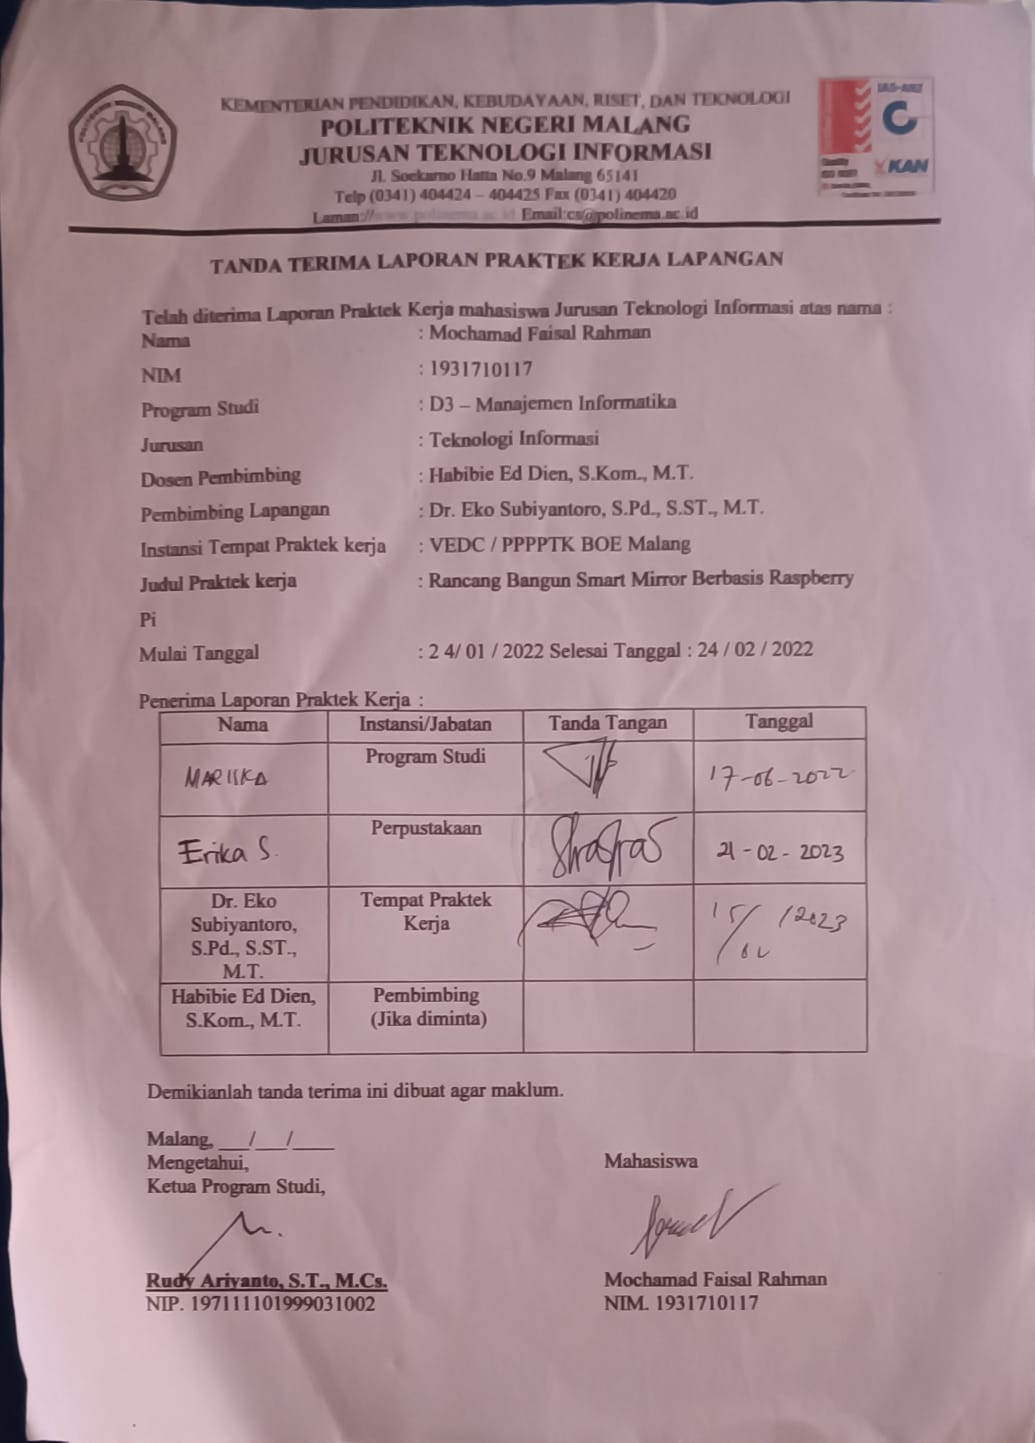 KEMENTERIAN PENDIDIKAN, KEBUDAYAAN, RISET, DAN TEKNOLOGI
POLITEKNIK NEGERI MALANG
JURUSAN TEKNOLOGI INFORMASI
Jl. Soekarno Hatta No.9 Malang 65141
Telp (0341) 404424 – 404425 Fax (0341) 404420
Laman://www.polinema.ac.id Email:cs@polinema.ac.id
KAN
TANDA TERIMA LAPORAN PRAKTEK KERJA LAPANGAN
Telah diterima Laporan Praktek Kerja mahasiswa Jurusan Teknologi Informasi atas nama :
Nama : Mochamad Faisal Rahman
NIM : 1931710117
Program Studi : D3 – Manajemen Informatika
Jurusan : Teknologi Informasi
Dosen Pembimbing : Habibie Ed Dien, S.Kom., M.T.
Pembimbing Lapangan : Dr. Eko Subiyantoro, S.Pd., S.ST., M.T.
Instansi Tempat Praktek kerja : VEDC / PPPPTK BOE Malang
Judul Praktek kerja : Rancang Bangun Smart Mirror Berbasis Raspberry
Pi
Mulai Tanggal : 2 4/ 01 / 2022 Selesai Tanggal : 24 / 02 / 2022
Penerima Laporan Praktek Kerja :
Nama Instansi/Jabatan Tanda Tangan Tanggal
MARISKA Program Studi 17-06-2022
Erika S. Perpustakaan 21-02-2023
Dr. Eko Tempat Praktek
Subiyantoro, Kerja 15/02/2023
S.Pd., S.ST.,
M.T.
Habibie Ed Dien, Pembimbing
S.Kom., M.T. (Jika diminta)
Demikianlah tanda terima ini dibuat agar maklum.
Malang, ___/___/____
Mengetahui, Mahasiswa
Ketua Program Studi,
Rudy Ariyanto, S.T., M.Cs. Mochamad Faisal Rahman
NIP. 197111101999031002 NIM. 1931710117